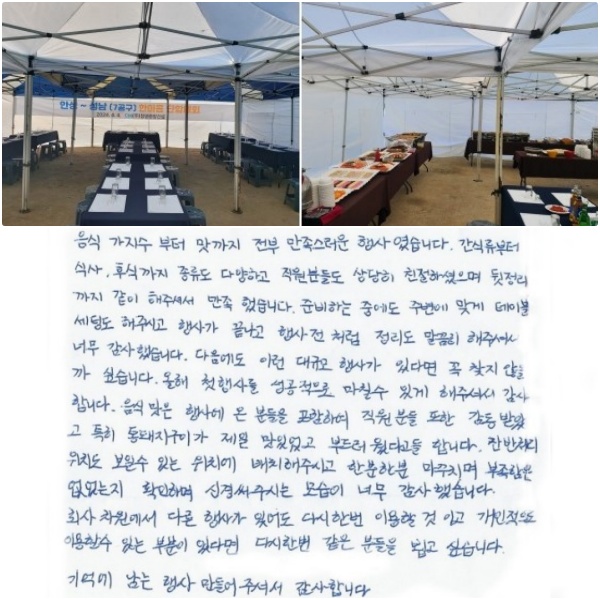 안성 ~ 성남 (7공구) 한마음 단합대회
음식 가지수 부터 맛까지 전부 만족스러운 행사 였습니다. 간식류부터
식사, 후식까지 종류도 다양하고 직원분들도 상당히 친절하였으며 뒷정리
까지 같이 해주셔서 만족 했습니다. 준비하는 중에도 주변에 맞게 테이블
세팅도 해주시고 행사가 끝나고 행사전 처럼 정리도 말끔히 해주셔서
너무 감사했습니다. 다음에도 이런 대규모 행사가 있다면 꼭 찾지 않을
까 싶습니다. 올해 첫행사를 성공적으로 마칠수 있게 해주셔서 감사
합니다. 음식 맞은 행사에 온 분들을 포함하여 직원분들 또한 감동 받았
고 특히 동태지구이가 제일 맛있었고 부드러웠다고들 합니다. 잔반처리
위치도 보일수 있는 위치에 배치해주시고 한분한분 마주치며 부족함은
없었는지 확인하며 신경써주시는 모습이 너무 감사했습니다.
회사 차원에서 다른 행사가 있어도 다시한번 이용할 것 이고 개인적으로
이용할수 있는 부분이 있다면 다시한번 같은 분들을 뵙고 싶습니다.
기억에 남는 행사 만들어 주셔서 감사합니다